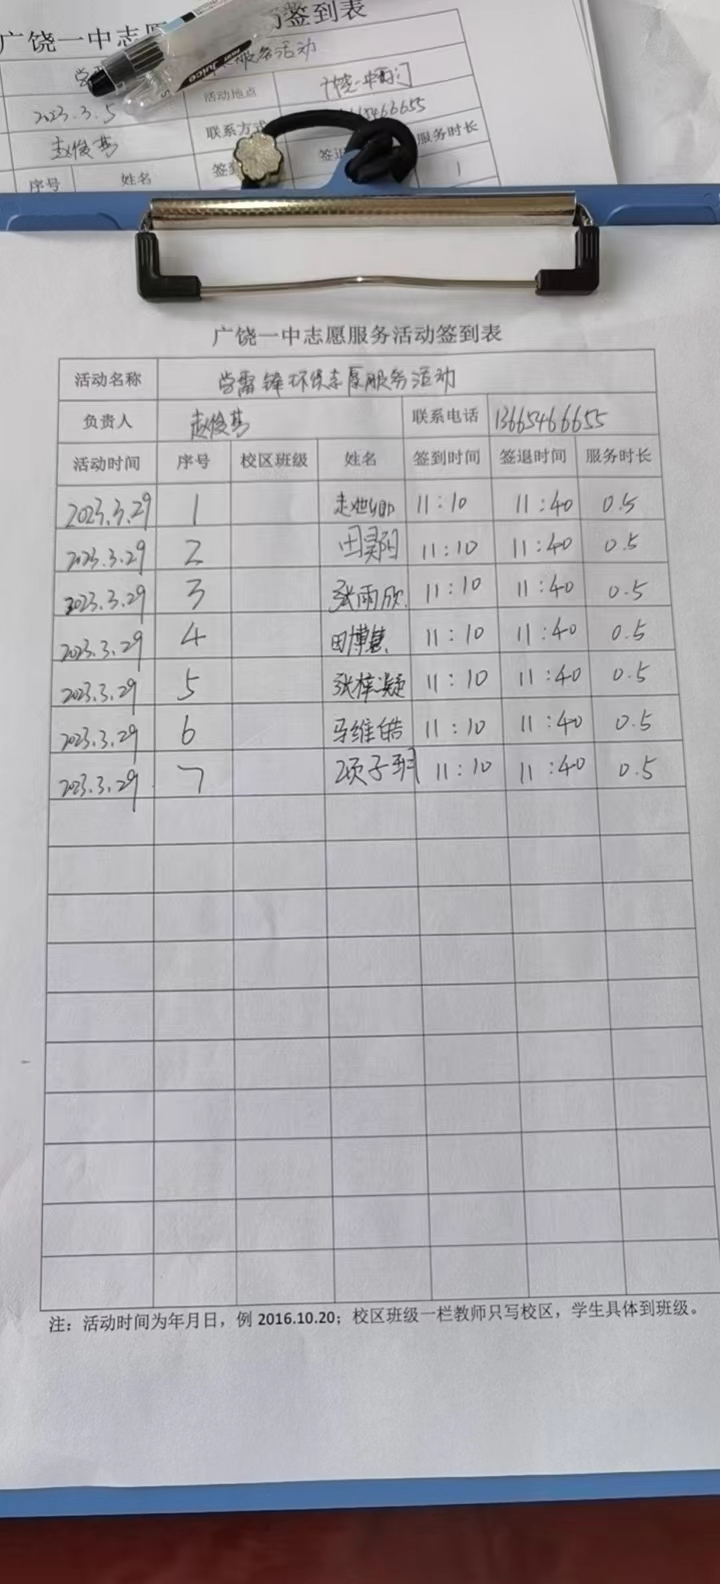 广饶一中志愿 活动签到表
服务活动
2023.3.5 活动地点 广饶一中西门
赵俊 联系方式 3665466655
序号 姓名 签到 签退 服务时长
1
Juice
广饶一中志愿服务活动签到表
活动名称 学雷锋环保志愿服务活动
负责人 赵俊 联系电话 13665466655
活动时间 序号 校区班级 姓名 签到时间 签退时间 服务时长
2023.3.29 1 11:10 11:40 0.5
2023.3.29 2 田昊阳 11:10 11:40 0.5
2023.3.29 3 张雨欣 11:10 11:40 0.5
2023.3.29 4 田博慧 11:10 11:40 0.5
2023.3.29 5 张梓凝 11:10 11:40 0.5
2023.3.29 6 马维皓 11:10 11:40 0.5
2023.3.29 7 项子玥 11:10 11:40 0.5
注：活动时间为年月日，例 2016.10.20；校区班级一栏教师只写校区，学生具体到班级。